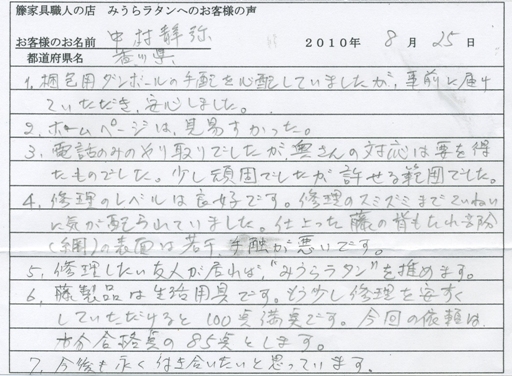 籐家具職人の店 みうらラタンへのお客様の声
お客様のお名前 中村静弥 2010年 8月 25日
都道府県名 香川県
1. 梱包用ダンボールの手配を心配していましたが、事前に届け
ていただき、安心しました。
2. ホームページは、見易すかった。
3. 電話のみのやり取りでしたが、奥さんの対応は要を得
たものでした。少し頑固でしたが許せる範囲でした。
4. 修理のレベルは良好です。修理のスミズミまでていねい
に気が配られていました。仕上った藤の背もたれ部
(網)の表面は若干、手触が悪いです。
5. 修理したい友人が居れば、"みうらラタン"を推めます。
6. 藤製品は生活用具です。もう少し修理を安すく
していただけると100点満点です。今回の依頼は、
十分合格点の85点とします。
7. 今後も永く付き合いたいと思っています。